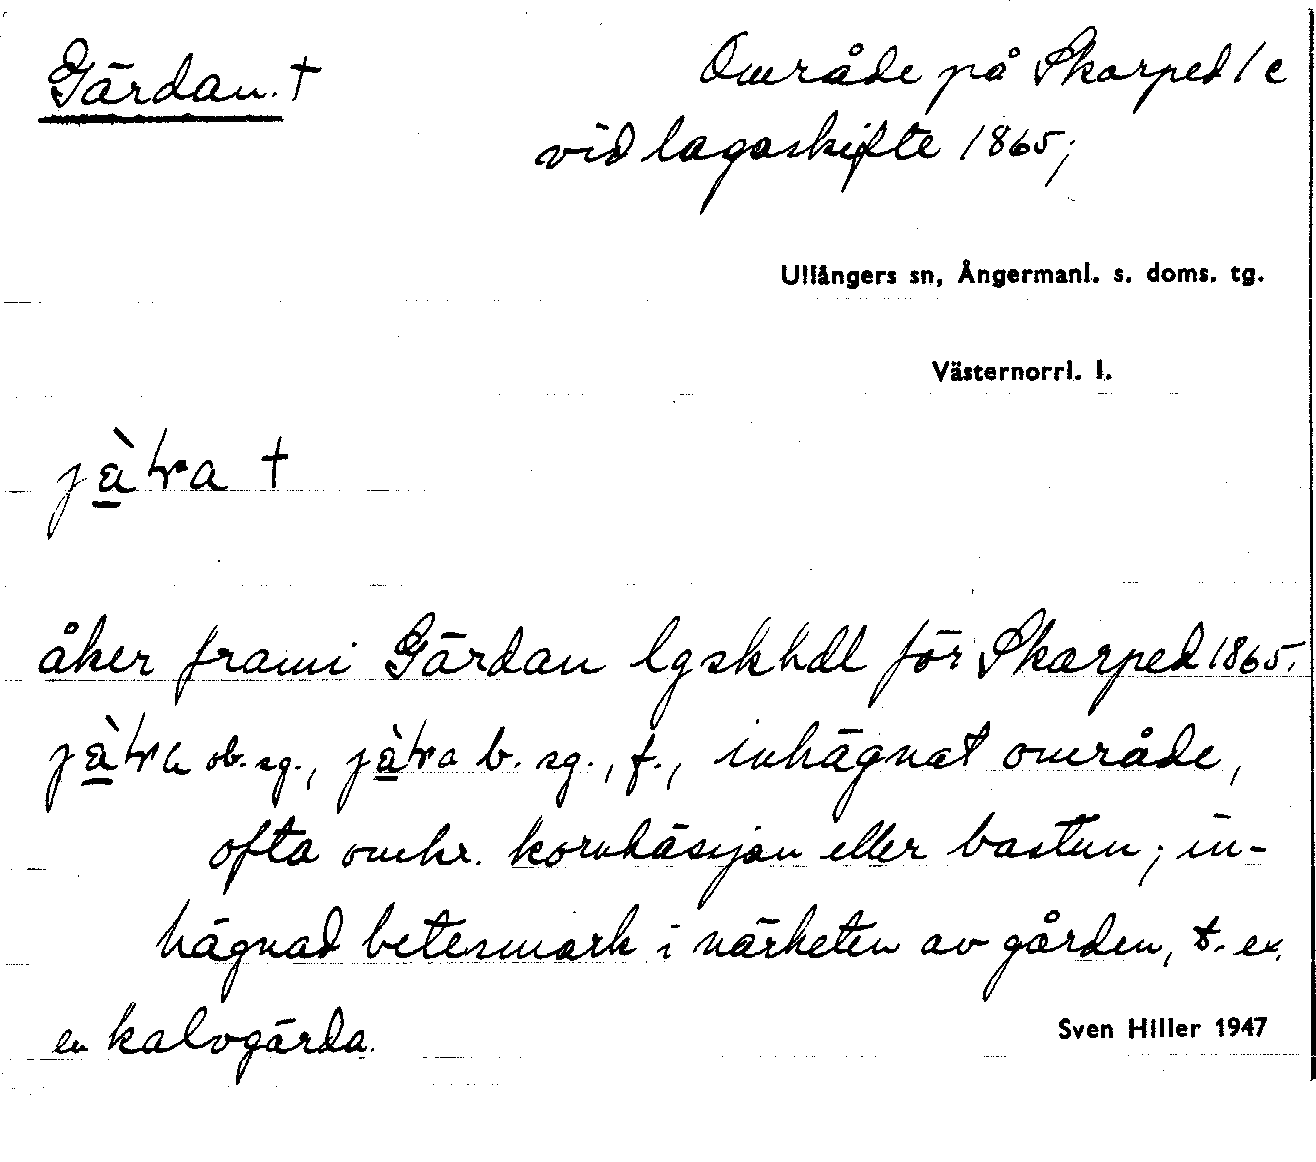 Gärdan. †
Område på Skorped 1/c
vid lagaskifte 1865;
Ullångers sn, Ångermanl. s. doms. tg.
Västernorrl. l.
†
åker frami Gärdan lgskhdl för Skorped 1865.
ob. sg., b. sg., f., inhägnat område,
ofta omkr. kornhässjan eller bastun; in-
hägnad betesmark i närheten av gården, t. ex.
en kalvgärda.
Sven Hiller 1947